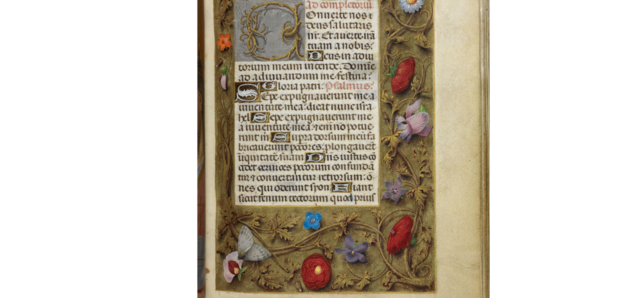 Ad completoriū
Onuerte nos
deus salutaris
nr̄. Et auerte irā
tuam a nobis.
Deus in adiu
torium meum intende. Domie
ad adiuuandum me festina.
Gloria patri. Psalmus.
Sepe expugnauerunt me a
iuuentute mea: dicat nunc isra
hel. Sepe expugnauerunt me
a iuuentute mea: etenim non potue
runt m̄. Supra dorsum meum fa
bricauerunt pctōres: plongauerūt
iniquitatē suam. Dns iustus co
cidet ceruices pctōrum: confundā
tur et conuertantur retrorsum: ō
nes qui oderunt syon. Fiant
sicut fenum tectorum: quod prius